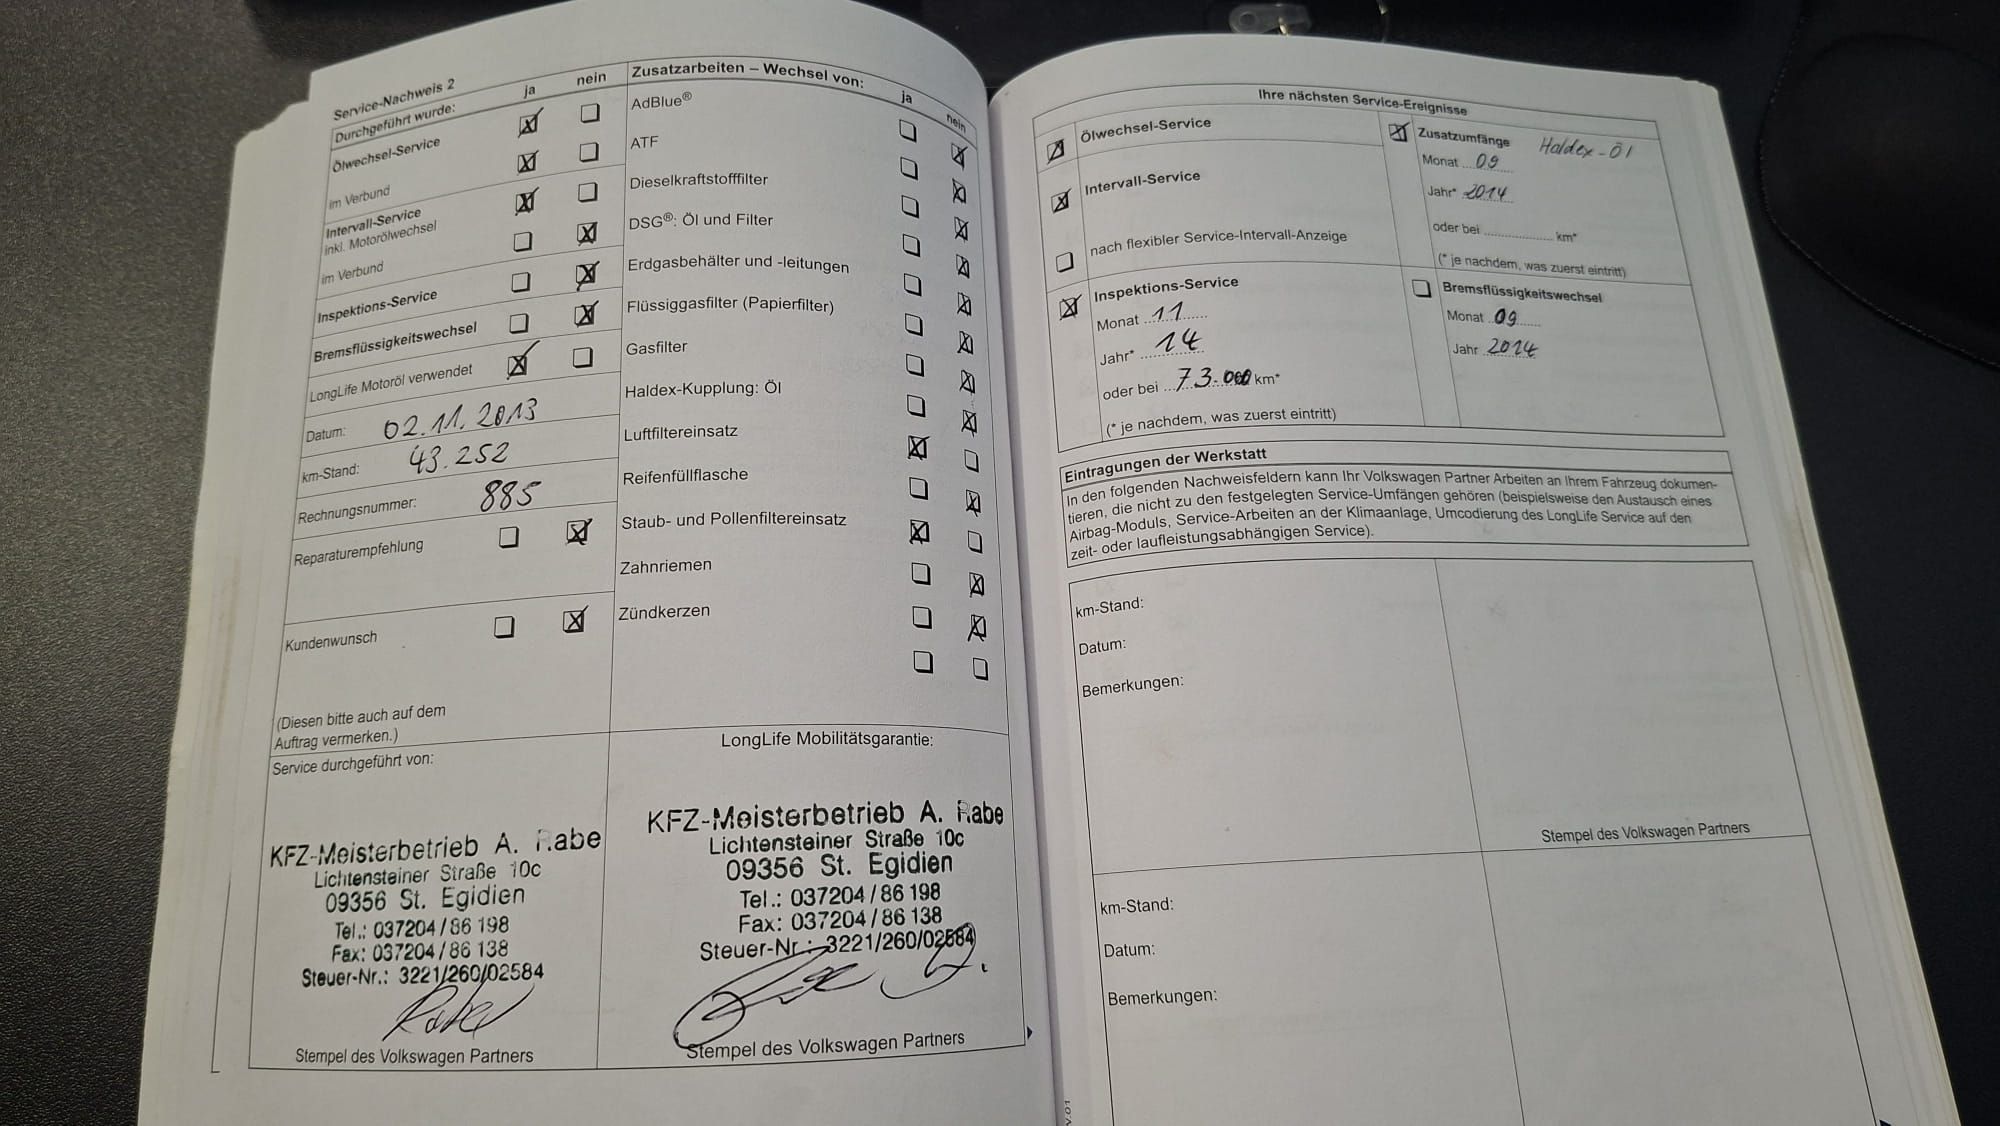 Service-Nachweis 2
Durchgeführt wurde:
ja
nein
Ölwechsel-Service
im Verbund
Intervall-Service
inkl. Motorölwechsel
im Verbund
Inspektions-Service
Bremsflüssigkeitswechsel
LongLife Motoröl verwendet
Datum: 02.11.2013
km-Stand: 43.252
Rechnungsnummer: 885
Reparaturempfehlung
Kundenwunsch
(Diesen bitte auch auf dem
Auftrag vermerken.)
Service durchgeführt von:
KFZ-Meisterbetrieb A. Rabe
Lichtensteiner Straße 10c
09356 St. Egidien
Tel.: 037204/86 198
Fax: 037204/86 138
Steuer-Nr.: 3221/260/02584
Rabe
Stempel des Volkswagen Partners
Zusatzarbeiten – Wechsel von:
ja
nein
AdBlue®
ATF
Dieselkraftstofffilter
DSG®: Öl und Filter
Erdgasbehälter und -leitungen
Flüssiggasfilter (Papierfilter)
Gasfilter
Haldex-Kupplung: Öl
Luftfiltereinsatz
Reifenfüllflasche
Staub- und Pollenfiltereinsatz
Zahnriemen
Zündkerzen
LongLife Mobilitätsgarantie:
KFZ-Meisterbetrieb A. Rabe
Lichtensteiner Straße 10c
09356 St. Egidien
Tel.: 037204/86 198
Fax: 037204/86 138
Steuer-Nr.: 3221/260/02584
Stempel des Volkswagen Partners
Ihre nächsten Service-Ereignisse
Ölwechsel-Service
Intervall-Service
nach flexibler Service-Intervall-Anzeige
Inspektions-Service
Monat 11
Jahr* 14
oder bei 73.000 km*
(* je nachdem, was zuerst eintritt)
Zusatzumfänge Haldex-Öl
Monat 09
Jahr* 2014
oder bei km*
(* je nachdem, was zuerst eintritt)
Bremsflüssigkeitswechsel
Monat 09
Jahr 2014
Eintragungen der Werkstatt
In den folgenden Nachweisfeldern kann Ihr Volkswagen Partner Arbeiten an Ihrem Fahrzeug dokumen-
tieren, die nicht zu den festgelegten Service-Umfängen gehören (beispielsweise den Austausch eines
Airbag-Moduls, Service-Arbeiten an der Klimaanlage, Umcodierung des LongLife Service auf den
zeit- oder laufleistungsabhängigen Service).
km-Stand:
Datum:
Bemerkungen:
Stempel des Volkswagen Partners
km-Stand:
Datum:
Bemerkungen: